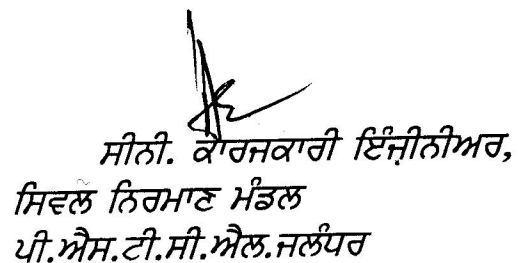 ਸੀਨੀ. ਕਾਰਜਕਾਰੀ ਇੰਜ਼ੀਨੀਅਰ,
ਸਿਵਲ ਨਿਰਮਾਣ ਮੰਡਲ
ਪੀ.ਐਸ.ਟੀ.ਸੀ.ਐਲ.ਜਲੰਧਰ